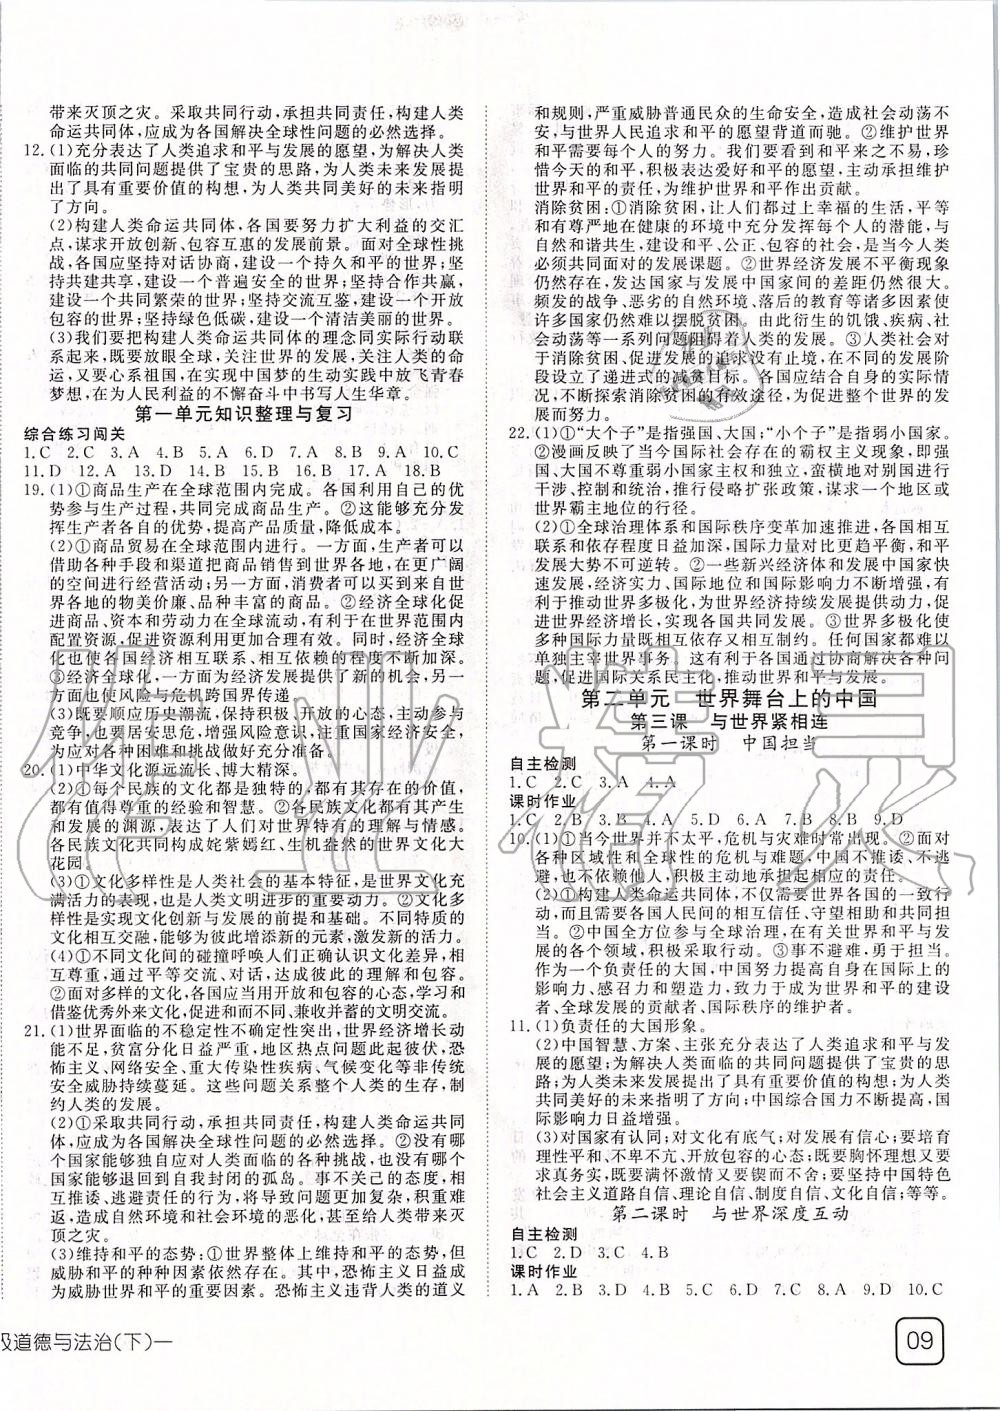 带来灭顶之灾。采取共同行动,承担共同责任,构建人类
命运共同体,应成为各国解决全球性问题的必然选择。
12.(1)充分表达了人类追求和平与发展的愿望,为解决人类
面临的共同问题提供了宝贵的思路,为人类未来发展提
出了具有重要价值的构想,为人类共同美好的未来指明
了方向。
(2)构建人类命运共同体,各国要努力扩大利益的交汇
点,谋求开放创新、包容互惠的发展前景。面对全球性挑
战,各国应坚持对话协商,建设一个持久和平的世界;坚
持共建共享,建设一个普遍安全的世界;坚持合作共赢,
建设一个共同繁荣的世界;坚持交流互鉴,建设一个开放
包容的世界;坚持绿色低碳,建设一个清洁美丽的世界。
(3)我们要把构建人类命运共同体的理念同实际行动联
系起来,既要放眼全球,关注世界的发展,关注人类的命
运,又要心系祖国,在实现中国梦的生动实践中放飞青春
梦想,在为人民利益的不懈奋斗中书写人生华章。
第一单元知识整理与复习
综合练习闯关
1.C 2.C 3.A 4.B 5.A 6.D 7.A 8.B 9.A 10.C
11.D 12.A 13.D 14.B 15.B 16.A 17.A 18.B
19.(1)①商品生产在全球范围内完成。各国利用自己的优
势参与生产过程,共同完成商品生产。②这能够充分发
挥生产者各自的优势,提高产品质量,降低成本。
(2)①商品贸易在全球范围内进行。一方面,生产者可以
借助各种手段和渠道把商品销售到世界各地,在更广阔
的空间进行经营活动;另一方面,消费者可以买到来自世
界各地的物美价廉、品种丰富的商品。②经济全球化促
进商品、资本和劳动力在全球流动,有利于在世界范围内
配置资源,促进资源利用更加合理有效。同时,经济全球
化也使各国经济相互联系、相互依赖的程度不断加深。
③经济全球化,一方面为经济发展提供了新的机会,另一
方面也使风险与危机跨国界传递。
(3)既要顺应历史潮流,保持积极、开放的心态,主动参与
竞争,也要居安思危,增强风险意识,注重国家经济安全,
为应对各种困难和挑战做好充分准备。
20.(1)中华文化源远流长、博大精深。
(2)①每个民族的文化都是独特的,都有其存在的价值,
都有值得尊重的经验和智慧。②各民族文化都有其产生
和发展的渊源,表达了人们对世界特有的理解与情感。
各民族文化共同构成姹紫嫣红、生机盎然的世界文化大
花园。
(3)①文化多样性是人类社会的基本特征,是世界文化充
满活力的表现,也是人类文明进步的重要动力。②文化多
样性是实现文化创新与发展的前提和基础。不同特质的
文化相互交融,能够为彼此增添新的元素,激发新的活力。
(4)①不同文化间的碰撞呼唤人们正确认识文化差异,相
互尊重,通过平等交流、对话,达成彼此的理解和包容。
②面对多样的文化,各国应当用开放和包容的心态,学习和
借鉴优秀外来文化,促进和而不同、兼收并蓄的文明交流。
21.(1)世界面临的不稳定性不确定性突出,世界经济增长动
能不足,贫富分化日益严重,地区热点问题此起彼伏,恐
怖主义、网络安全、重大传染性疾病、气候变化等非传统
安全威胁持续蔓延。这些问题关系整个人类的生存,制
约人类的发展。
(2)①采取共同行动,承担共同责任,构建人类命运共同
体,应成为各国解决全球性问题的必然选择。②没有哪
个国家能够独自应对人类面临的各种挑战,也没有哪个
国家能够退回到自我封闭的孤岛。事不关己的态度,相
互推诿、逃避责任的行为,将导致问题更加复杂,积重难
返,造成自然环境和社会环境的恶化,给人类带来灭
顶之灾。
(3)维持和平的态势:①世界整体上维持和平的态势,但
威胁世界和平的种种因素依然存在。②恐怖主义日益成
为威胁世界和平的重要因素。恐怖主义违背人类的道义
和规则,严重威胁普通民众的生命安全,造成社会动荡不
安,与世界人民追求和平的愿望背道而驰。②维护世界
和平需要每个人的努力。我们要认识到和平来之不易,珍
惜今天的和平,积极表达爱好和平的意愿,主动承担维护
世界和平的责任,为维护世界和平作出贡献。
消除贫困:①消除贫困,让人们都过上幸福的生活,平等
和有尊严地在健康的环境中充分发挥每个人的潜能,与
自然和谐共生,建设和平、公正、包容的社会,是当今人类
必须共同面对的发展课题。②世界经济发展不平衡现象
仍然存在,发达国家与发展中国家间的差距仍然很大。
频发的战争、恶劣的自然环境、落后的教育等诸多因素使
许多国家仍然难以摆脱贫困。由此衍生的饥饿、疾病、社
会动荡等一系列问题阻碍着人类的发展。③人类社会对
于消除贫困、促进发展的追求没有止境,在不同的发展阶
段设立了递进式的减贫目标。各国应结合自身的实际情
况,不断探索消除贫困的有效途径,为促进整个世界的发
展。
22.(1)①“大个子”是指强国、大国;“小个子”是指弱小国家。
②漫画反映了当今国际社会存在的霸权主义现象,即强
国、大国不尊重弱小国家的主权和独立,蛮横地对别国进行
干涉、控制和统治,推行侵略扩张政策,谋求一个地区或
世界霸主地位的行径。
(2)①全球治理体系和国际秩序变革加速推进,各国相互
联系和依存程度日益加深,国际力量对比更趋平衡,和平
发展大势不可逆转。②一些新兴经济体和发展中国家快
速发展,经济实力、国际地位和国际影响力不断增强,有
利于推动世界多极化,为世界经济持续发展提供动力,促
进世界经济增长,实现各国共同发展。③世界多极化使
众多国际力量既相互依存又相互制约。任何国家都难以
单独主宰世界事务。这有利于各国通过协商解决各种问
题,促进国际关系民主化,推动世界和平与发展。
第二单元 世界舞台上的中国
第三课 与世界紧相连
第一课时 中国担当
自主检测
1.C 2.C 3.A 4.A
课时作业
1.C 2.B 3.A 4.A 5.D 6.A 7.B 8.B 9.D
10.(1)①当今世界并不太平,危机与灾难时常出现。②面对
各种区域性和全球性的危机与难题,中国不推诿、不逃
避,也不依赖他人,积极主动地承担起相应的责任。
(2)①构建人类命运共同体,不仅需要世界各国的一致行
动,而且需要各国人民间的相互信任、守望相助和共同担
当。②中国全方位参与全球治理,在有关世界和平与发
展的各个领域,积极采取行动。③事不避难,勇于担当。
作为一个负责任的大国,中国努力提高自身在国际上的
影响力、感召力和塑造力,致力于成为世界和平的建设
者、全球发展的贡献者、国际秩序的维护者。
11.(1)负责任的大国形象。
(2)中国智慧、方案、主张充分表达了人类追求和平与发
展的愿望;为解决人类面临的共同问题提供了宝贵的思
路;为人类未来发展提出了具有重要价值的构想;为人类
共同美好的未来指明了方向;中国综合国力不断提高,国
际影响力日益增强。
(3)对国家有认同;对文化有底气;对发展有信心;要培育
理性平和、不卑不亢、开放包容的心态;既要胸怀理想又要
求真务实,既要满怀激情又要锲而不舍;要坚持中国特色
社会主义道路自信、理论自信、制度自信、文化自信;等等。
第二课时 与世界深度互动
自主检测
1.C 2.D 3.C 4.B
课时作业
1.A 2.D 3.B 4.D 5.C 6.B 7.C 8.A 9.D 10.C
级道德与法治(下)一
09
作业精灵